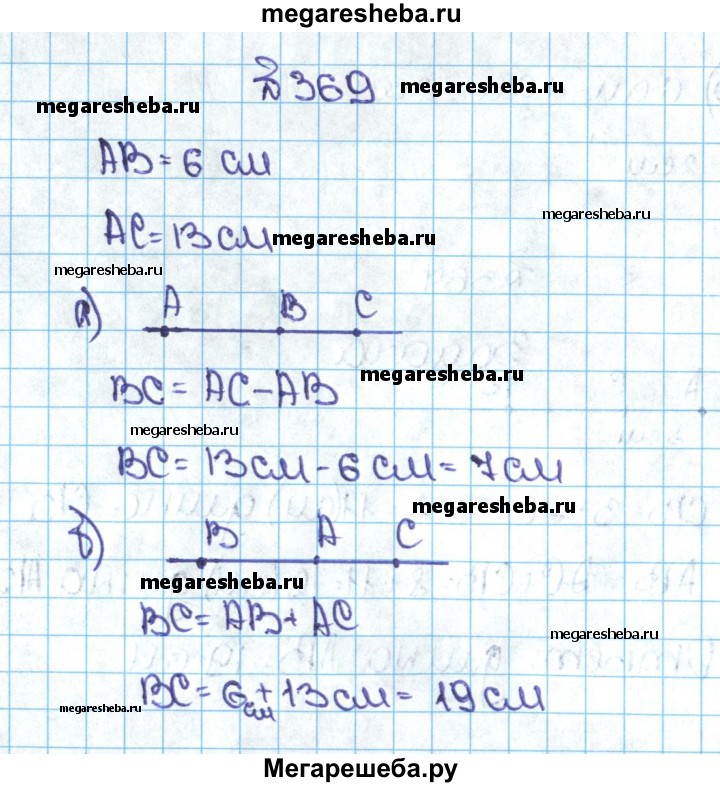 megaresheba.ru
№ 369 megaresheba.ru
megaresheba.ru
AB = 6 см
megaresheba.ru
AC = 13 см megaresheba.ru
megaresheba.ru
а) A B C
BC = AC - AB megaresheba.ru
megaresheba.ru
BC = 13 см - 6 см = 7 см
megaresheba.ru
б) B A C
megaresheba.ru
BC = AB + AC
megaresheba.ru
BC = 6 см + 13 см = 19 см
megaresheba.ru
Мегарешеба.ру